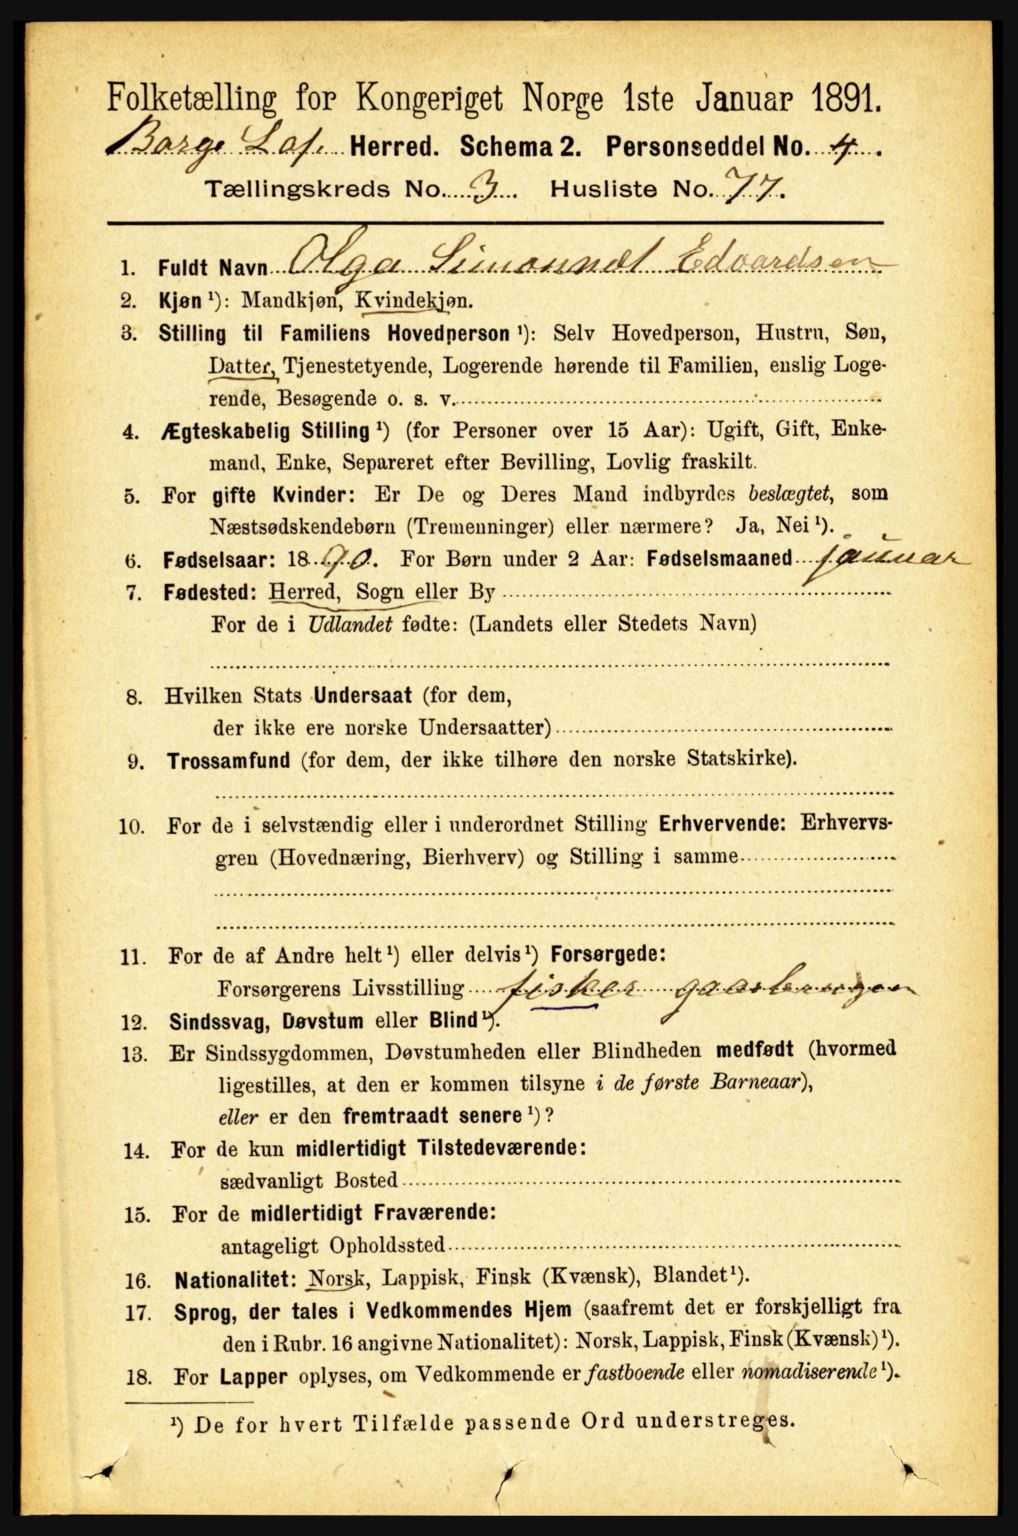 Folketælling for Kongeriget Norge 1ste Januar 1891.
Borge Lof. Herred. Schema 2. Personseddel No. 4.
Tællingskreds No. 3. Husliste No. 77.
1. Fuldt Navn Olga Edvardsen
2. Kjøn ¹): Mandkjøn, Kvindekjøn.
3. Stilling til Familiens Hovedperson ¹): Selv Hovedperson, Hustru, Søn,
Datter, Tjenestetyende, Logerende hørende til Familien, enslig Loge-
rende, Besøgende o. s. v.
4. Ægteskabelig Stilling ¹) (for Personer over 15 Aar): Ugift, Gift, Enke-
mand, Enke, Separeret efter Bevilling, Lovlig fraskilt.
5. For gifte Kvinder: Er De og Deres Mand indbyrdes beslægtet, som
Næstsødskendebørn (Tremenninger) eller nærmere? Ja, Nei ¹).
6. Fødselsaar: 1890. For Børn under 2 Aar: Fødselsmaaned januar
7. Fødested: Herred, Sogn eller By
For de i Udlandet fødte: (Landets eller Stedets Navn)
8. Hvilken Stats Undersaat (for dem,
der ikke ere norske Undersaatter)
9. Trossamfund (for dem, der ikke tilhøre den norske Statskirke).
10. For de i selvstændig eller i underordnet Stilling Erhvervende: Erhvervs-
gren (Hovednæring, Bierhverv) og Stilling i samme
11. For de af Andre helt ¹) eller delvis ¹) Forsørgede:
Forsørgerens Livsstilling fisker
12. Sindssvag, Døvstum eller Blind ¹).
13. Er Sindssygdommen, Døvstumheden eller Blindheden medfødt (hvormed
ligestilles, at den er kommen tilsyne i de første Barneaar),
eller er den fremtraadt senere ¹)?
14. For de kun midlertidigt Tilstedeværende:
sædvanligt Bosted
15. For de midlertidigt Fraværende:
antageligt Opholdssted
16. Nationalitet: Norsk, Lappisk, Finsk (Kvænsk), Blandet ¹).
17. Sprog, der tales i Vedkommendes Hjem (saafremt det er forskjelligt fra
den i Rubr. 16 angivne Nationalitet): Norsk, Lappisk, Finsk (Kvænsk) ¹).
18. For Lapper oplyses, om Vedkommende er fastboende eller nomadiserende ¹).
¹) De for hvert Tilfælde passende Ord understreges.